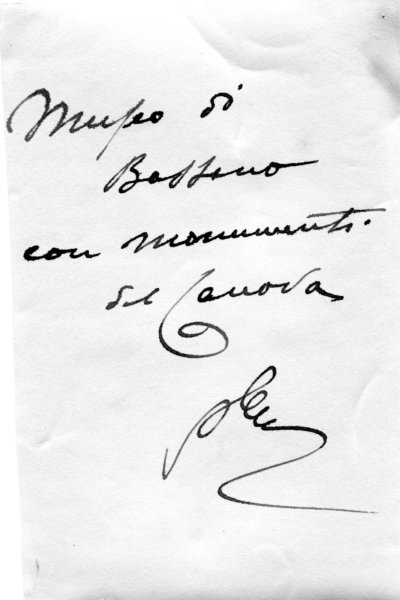 Museo di
Bassano
con monumenti
del Canova